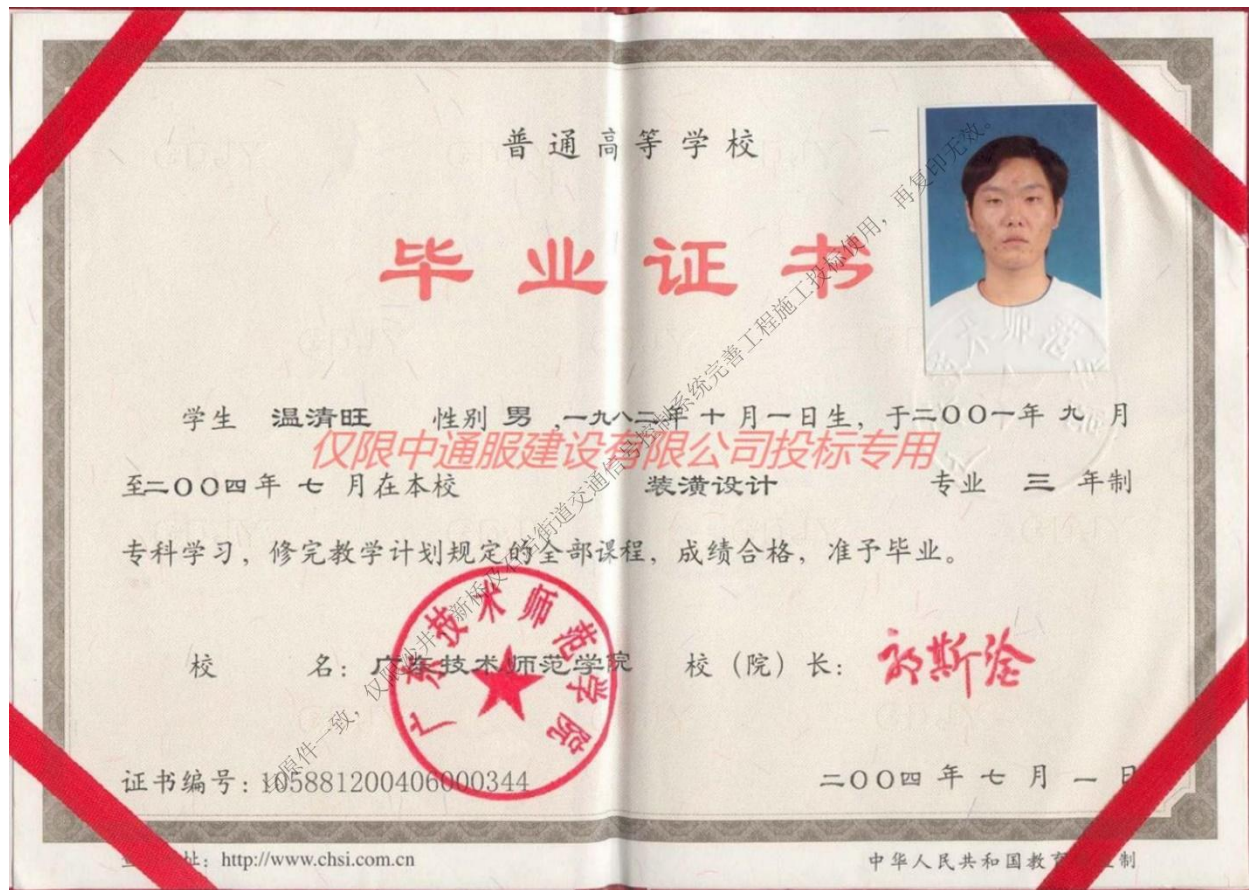 普通高等学校
毕业证书
学生 温清旺 性别 男 ,一九八二年 十 月一日生, 于二〇〇一年 九 月
仅限中通服建设有限公司投标专用
至二〇〇四年 七 月在本校 装潢设计 专业 三 年制
专科学习, 修完教学计划规定的全部课程, 成绩合格, 准予毕业。
校 名: 广东技术师范学院 校 (院) 长:
广东技术师范学院
证书编号: 105881200406000344 二〇〇四 年 七 月 一 日
址: http://www.chsi.com.cn 中华人民共和国教育 制
原件一致, 仅限沙井、新桥及石岩街道交通信号控制系统完善工程施工投标使用, 再复印无效。
术师范